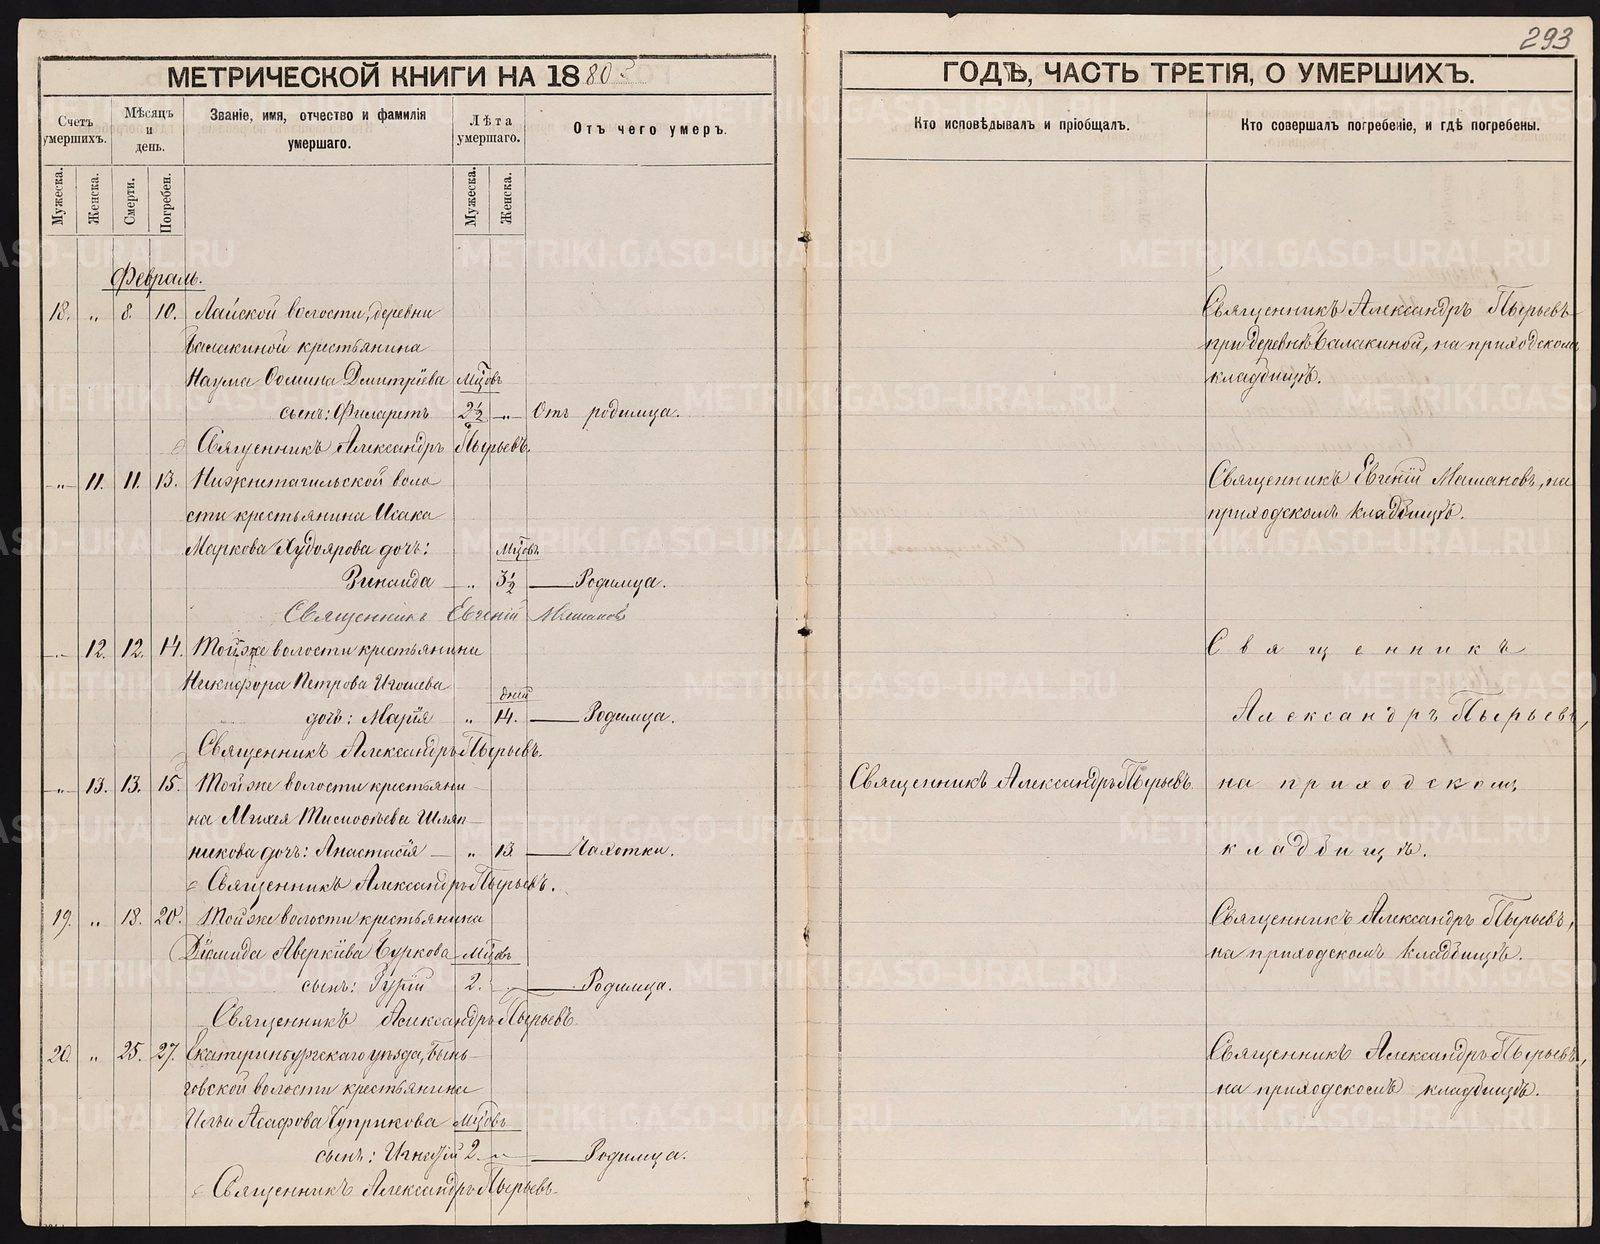 293
МЕТРИЧЕСКОЙ КНИГИ НА 1880
ГОДЪ, ЧАСТЬ ТРЕТІЯ, О УМЕРШИХЪ.
Счетъ умершихъ.
Мѣсяцъ и день.
Званіе, имя, отчество и фамилія умершаго.
Лѣта умершаго.
Отъ чего умеръ.
Кто исповѣдывалъ и пріобщалъ.
Кто совершалъ погребеніе, и гдѣ погребены.
Мужеска.
Женска.
Смерти.
Погребен.
Мужеска.
Женска.
Февраль.
18. " 8. 10. Лайской волости, деревни
Балакиной крестьянина
Наума Фомина Дмитріева Мцовъ
сынъ: Филаретъ 2½ " Отъ родимца.
Священникъ Александръ Пырьевъ.
Священникъ Александръ Пырьевъ
при деревнѣ Балакиной, на приходскомъ
кладбищѣ.
" 11. 11. 13. Нижнетагильской воло
сти крестьянина Исака
Маркова Худоярова дочь: Мцовъ
Зинаида " 3½ Родимца.
Священникъ Евгеній
Священникъ Евгеній на
приходскомъ кладбищѣ.
" 12. 12. 14. Той же волости крестьянина
Никифора Петрова дней
дочь: Марія " 14. Родимца.
Священникъ Александръ Пырьевъ.
" 13. 13. 15. Той же волости крестьяни
на Михея Тимоѳеева Шляп
никова дочь: Анастасія " 13. Чахотки.
Священникъ Александръ Пырьевъ.
Священникъ Александръ Пырьевъ
Священникъ
Александръ Пырьевъ,
на приходскомъ
кладбищѣ.
19. " 18. 20. Той же волости крестьянина
Діомида Аверкіева Буркова Мцовъ
сынъ: Гурій 2. " Родимца.
Священникъ Александръ Пырьевъ
Священникъ Александръ Пырьевъ,
на приходскомъ кладбищѣ.
20. " 25. 27. Екатеринбургскаго уѣзда, Бынь
говской волости крестьянина
Ильи Асафова Чуприкова Мцовъ
сынъ: Игнатій 2. " Родимца.
Священникъ Александръ Пырьевъ
Священникъ Александръ Пырьевъ,
на приходскомъ кладбищѣ.
METRIKI.GASO-URAL.RU